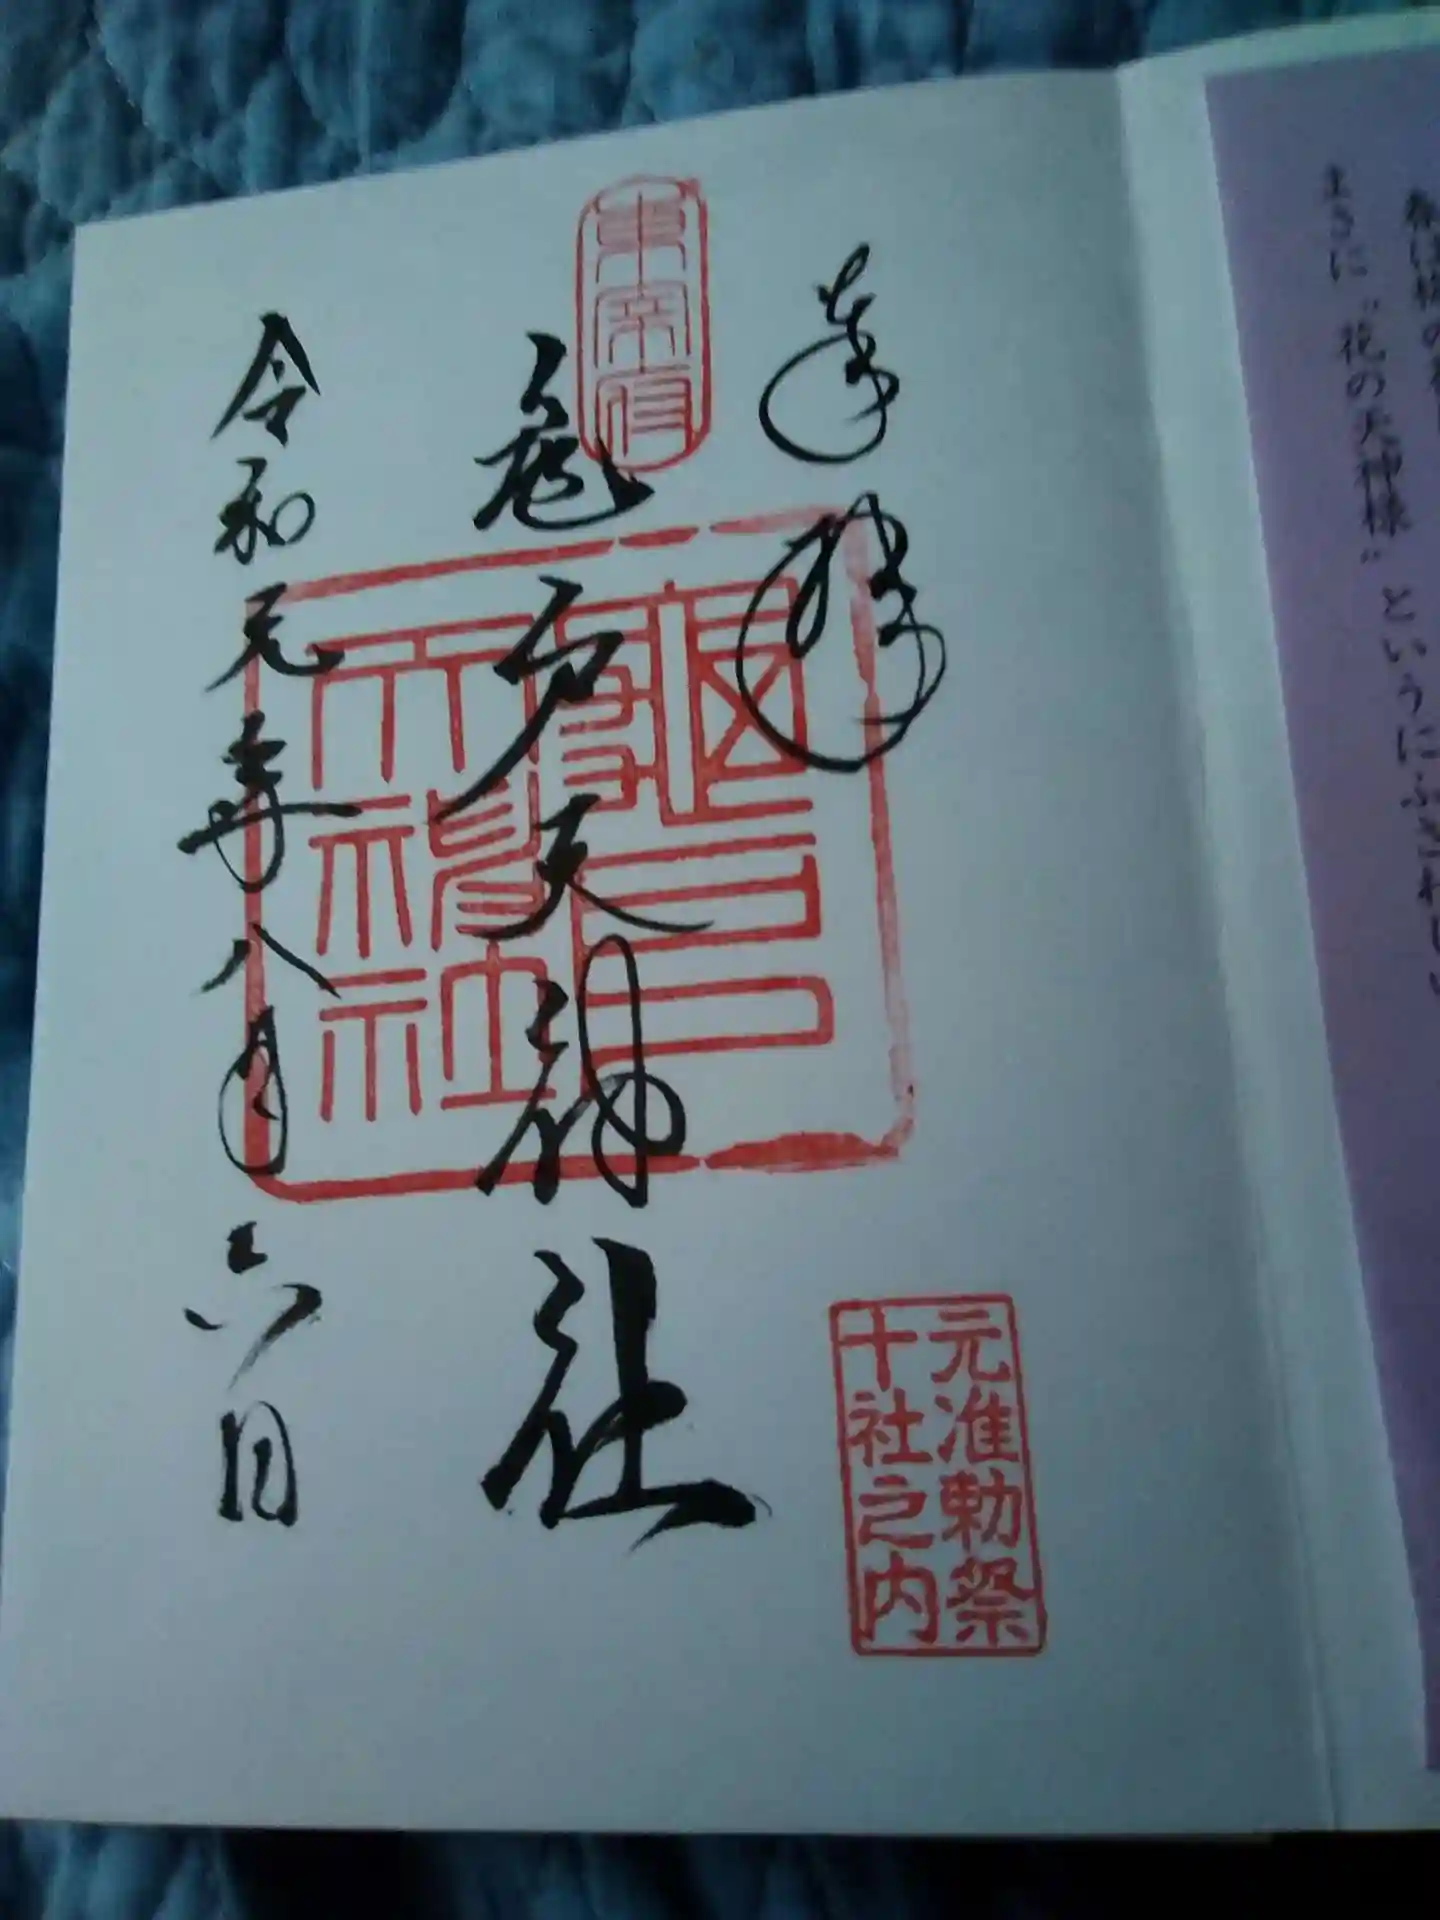 まさに〝花の天神様〟というにふさわしい
奉拝
東宰府
亀戸天神社
亀戸
天神社
令和元年八月六日
元准勅祭
十社之内